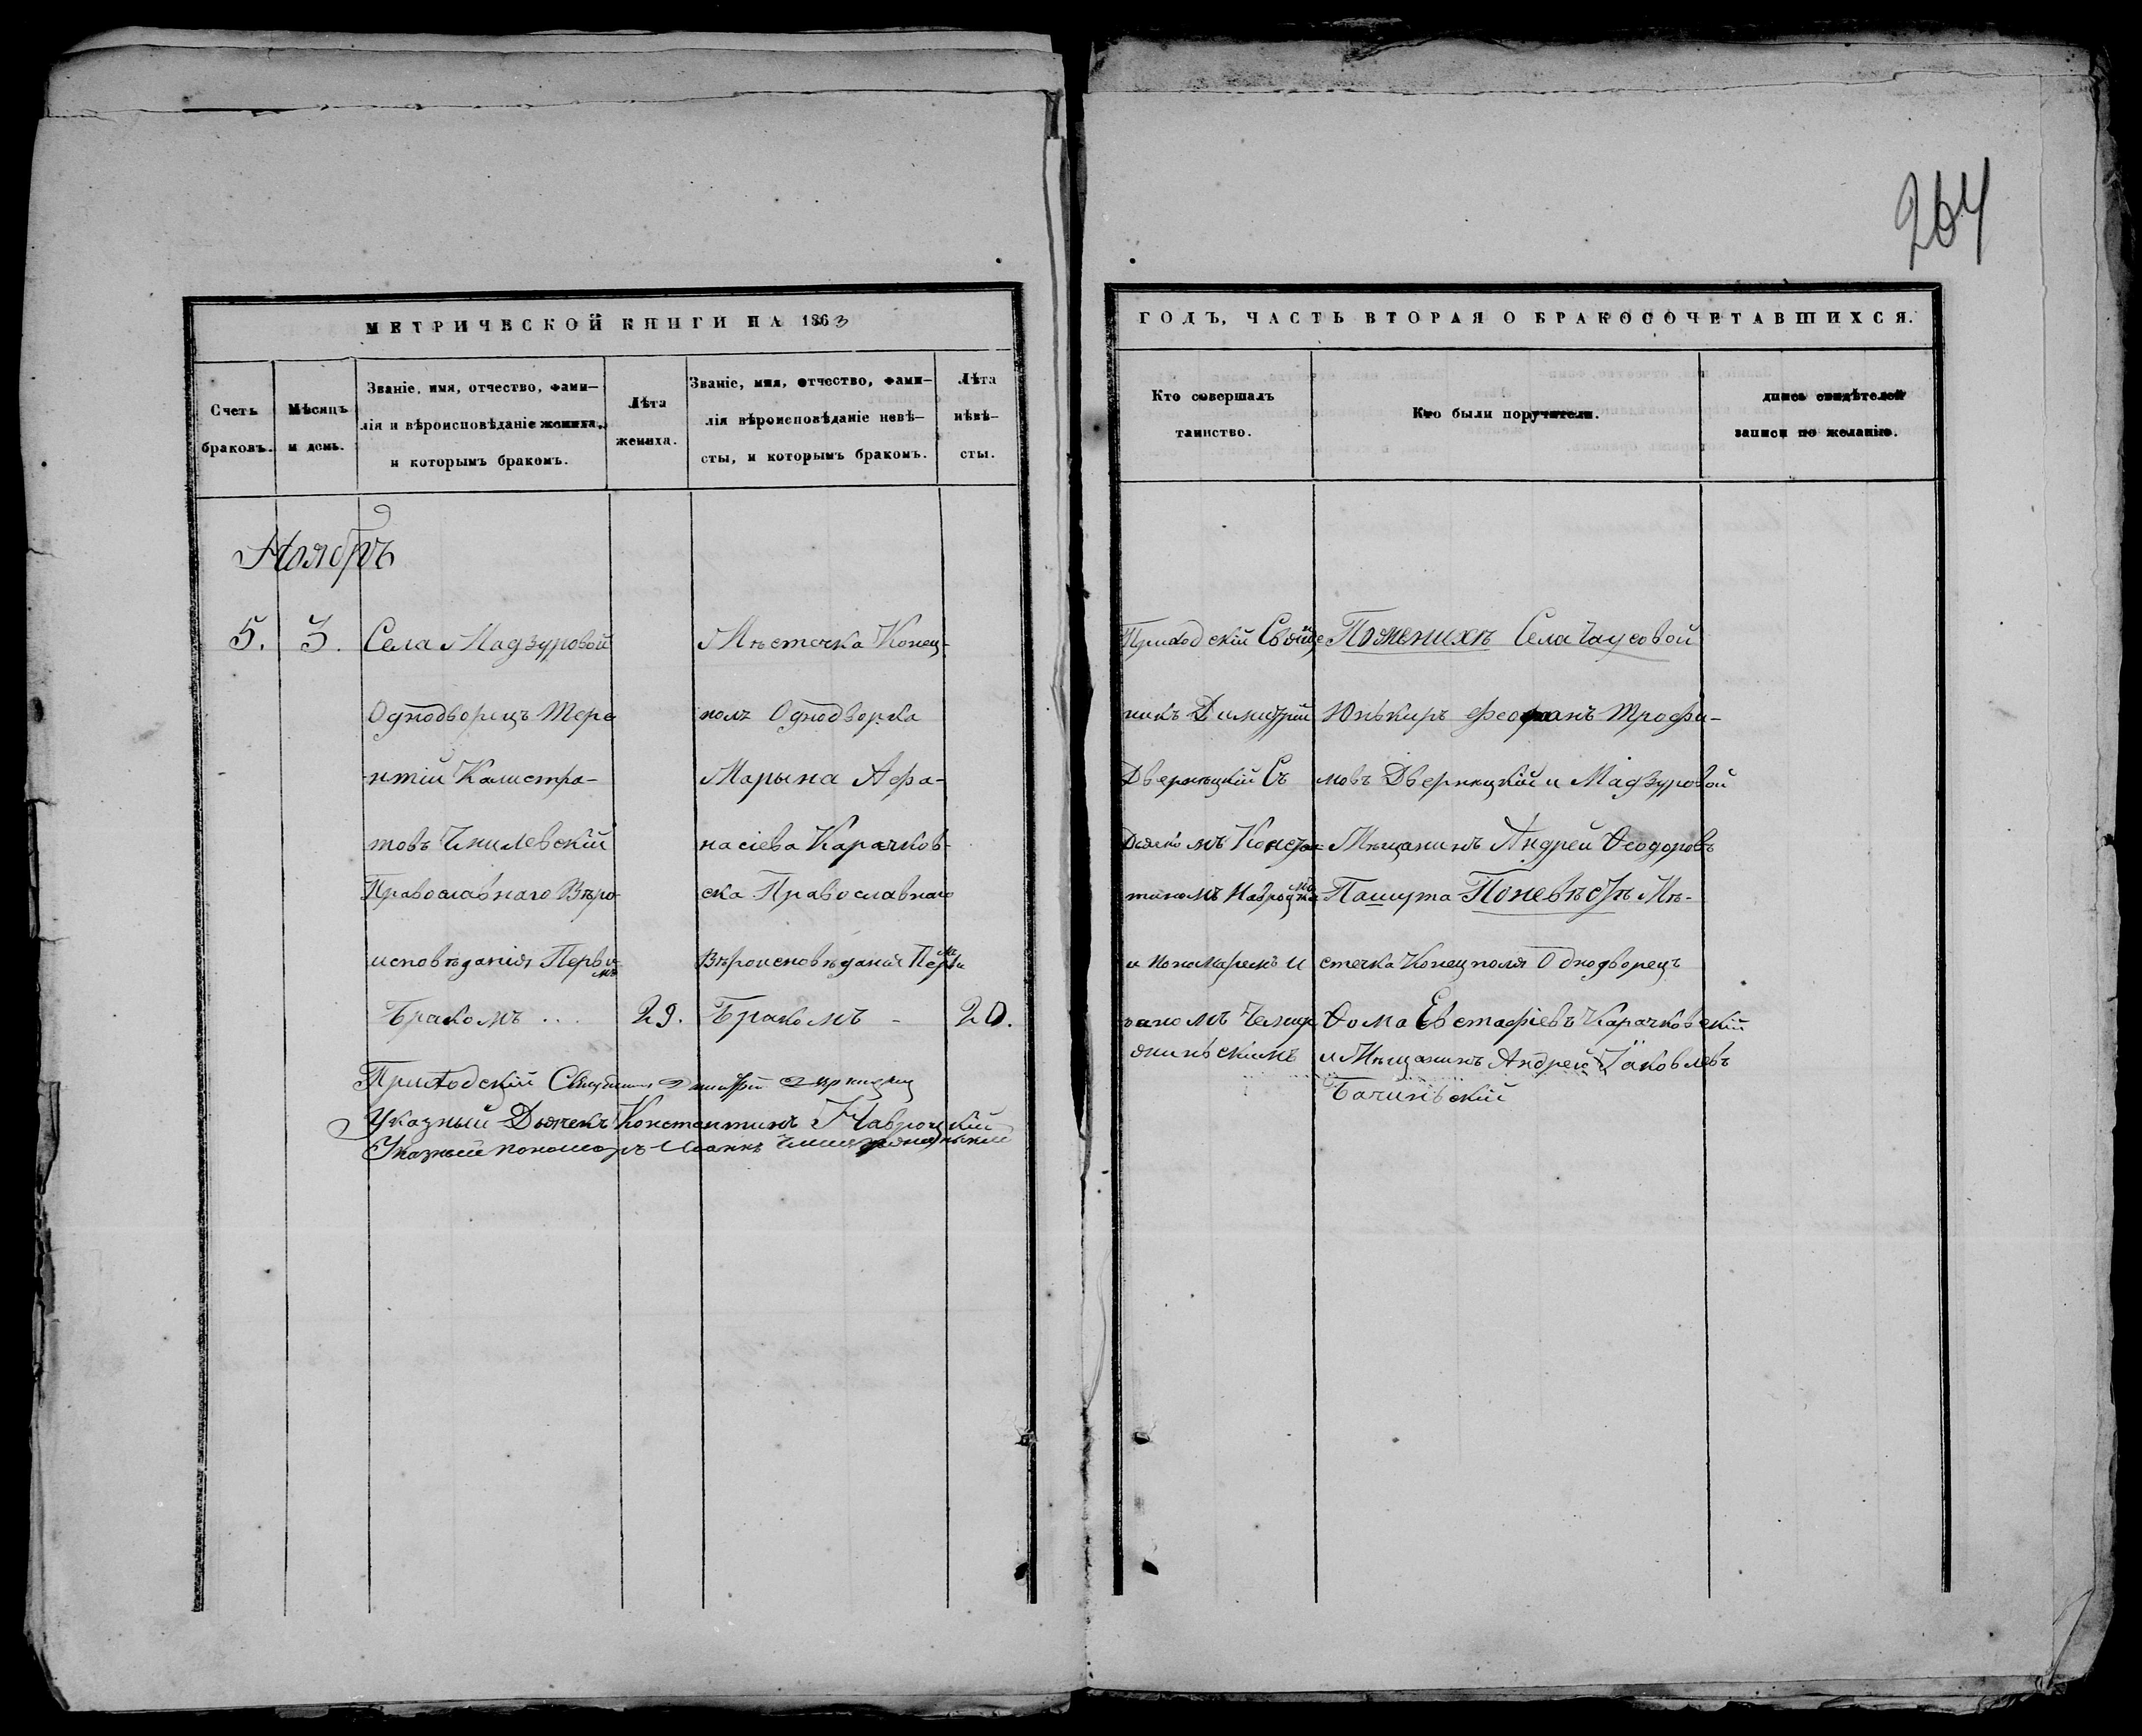 264
МЕТРИЧЕСКОЙ КНИГИ НА 1863
Счетъ браковъ.
Мѣсяцъ и день.
Званіе, имя, отчество, фами-
лія и вѣроисповѣданіе жениха,
и которымъ бракомъ.
Лѣта жениха.
Званіе, имя, отчество, фами-
лія вѣроисповѣданіе невѣ-
сты, и которымъ бракомъ.
Лѣта
нѣвѣ-
сты.
Ноябръ
5.
3.
Села Мадзуровой
Однодворецъ Тере
нтій Калистра-
товъ
Православнаго Вѣро
исповѣданія Первы
мъ
Бракомъ ..
29.
Мѣстечка Конец-
полъ Однодворка
Марына Афа-
насіева Карачков-
ска Православнаго
Вѣроисповѣданія Первы
мъ
Бракомъ -
20.
Приходскій Священникъ Димитрій
Указный Дьячекъ Константинъ Навроцкій
Указный пономаръ Иоаннъ
ГОДЪ, ЧАСТЬ ВТОРАЯ О БРАКОСОЧЕТАВШИХСЯ.
Кто совершалъ
таинство.
Кто были поручители.
дпись свидѣтелей
записи по желанію.
Приходскій Свяще
никъ Димитрій
Дверницкій Съ
Дьячкомъ Констан-
тиномъ Навроцки
мъ
и Пономаремъ И
оаномъ
По женихѣ Села Чаусовой
Юнькиръ Феофанъ Трофи-
мовъ Дверницкій и Мадзуровой
Мѣщанинъ Андрей Ѳеодоровъ
Пашута По невѣстѣ Мѣ-
стечка Конецполя Однодворецъ
Ѳома Евстафіевъ Карачковскій
и Мѣщанинъ Андрей Іаковлевъ
Бачиньскій